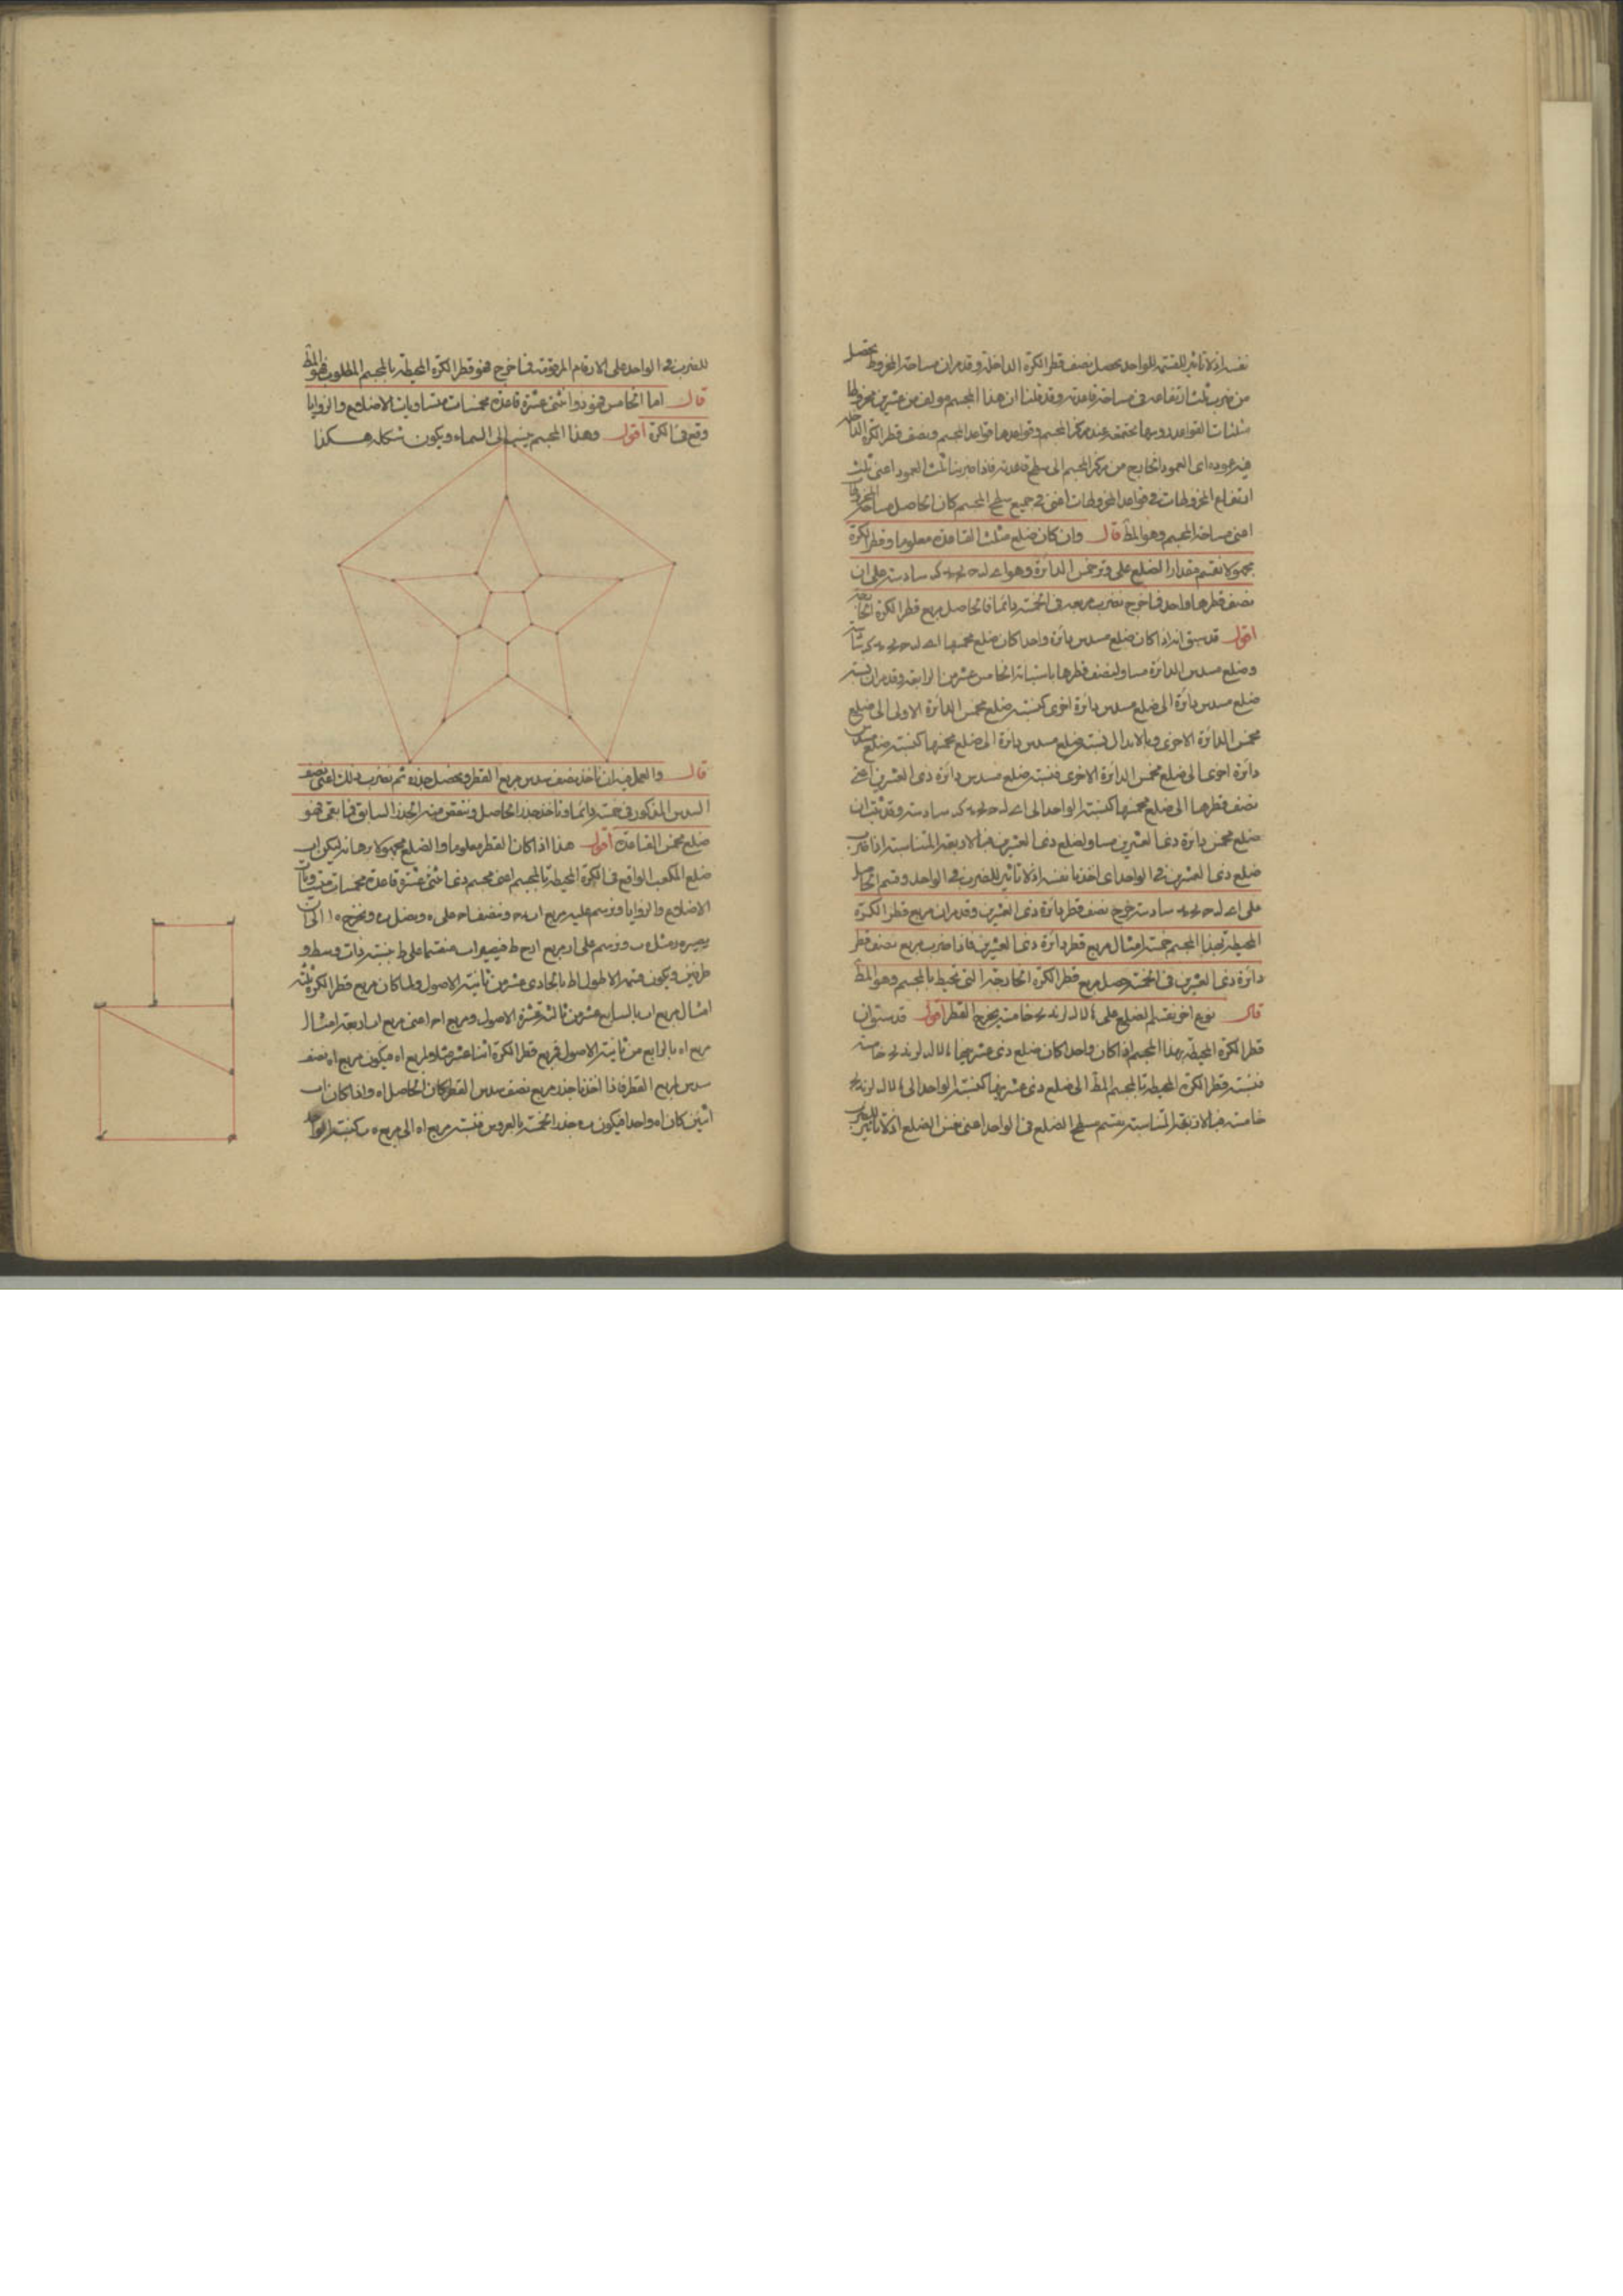 نفسه اذ لا تاثير للقسمة للواحد يحصل نصف قطر الكرة الداخلة وقد مر ان مساحة المخروط يحصل
من ضرب ثلث ارتفاعه في مساحة قاعدته وقد قلنا ان هذا المجسم مولف من عشرين مخروطا
مثلثات القواعد رؤسها مجتمعة عند مركز المجسم وقواعدها قواعد المجسم ونصف قطر الكرة الداخلة
فيه عموده اى العمود الخارج من مركز المجسم الى سطح قاعدته فاذا ضربنا ثلث العمود اعنى ثلث
ارتفاع المخروطات في قواعد المخروطات اعنى في جميع سطح المجسم كان الحاصل مساحة المخروطات
اعنى مساحة المجسم وهو المط قال وان كان ضلع مثلث القاعدة معلوما وقطر الكرة
مجهولا نقسم مقدار الضلع على وتر خمس الدائرة وهو سادسة على ان
نصف قطرها واحد فما خرج نضرب مربعه في الخمسة دائما فالحاصل مربع قطر الكرة الخارجة
اقول قد سبق انه اذا كان ضلع مسدس دائرة واحدا كان ضلع مخمسها
وضلع مسدس الدائرة مساو لنصف قطرها باستبانة الخامس عشر من الرابعة وقد مر ان نسبة
ضلع مسدس دائرة الى ضلع مسدس دائرة اخرى كنسبة ضلع مخمس الدائرة الاولى الى ضلع
مخمس الدائرة الاخرى وبالابدال نسبة ضلع مسدس دائرة الى ضلع مخمسها كنسبة ضلع مسدس
دائرة اخرى الى ضلع مخمس الدائرة الاخرى فنسبة ضلع مسدس دائرة ذى العشرين اعنى
نصف قطرها الى ضلع مخمسها كنسبة الواحد الى سادسة وقد ثبت ان
ضلع مخمس دائرة ذى العشرين مساو لضلع ذى العشرين فبالاربعة المتناسبة اذا ضرب
ضلع ذى العشرين في الواحد اى اخذنا نفسه اذ لا تاثير للضرب في الواحد وقسم الحاصل
على سادسة خرج نصف قطر دائرة ذى العشرين وقد مر ان مربع قطر الكرة
المحيطة بهذا المجسم خمسة امثال مربع قطر دائرة ذى العشرين فاذا ضرب مربع نصف قطر
دائرة ذى العشرين في الخمسة حصل مربع قطر الكرة الخارجة التى تحيط بالمجسم وهو المط
قال نوع اخر نقسم الضلع على خامسة يخرج القطر اقول قد سبق ان
قطر الكرة المحيطة بهذا المجسم اذا كان واحدا كان ضلع ذى عشرينها خامسة
فنسبة قطر الكرة المحيطة بالمجسم المط الى ضلع ذى عشرينها كنسبة الواحد الى
خامسة فبالاربعة المتناسبة نقسم سطح الضلع في الواحد اعنى نفس الضلع اذ لا تاثير
للضرب في الواحد على الارقام المرقومة فما خرج فهو قطر الكرة المحيطة بالمجسم المطلوب فهو المط
قال اما الخامس فهو ذو اثنتى عشرة قاعدة مخمسات متساويات الاضلاع والزوايا
وقع في الكرة اقول وهذا المجسم الى السماء ويكون شكله هكذا
قال والعمل فيه ان ناخذ نصف سدس مربع القطر ونحصل جذره ثم نضرب ذلك اعنى نصف
السدس المذكور في خمسة دائما وناخذ جذر الحاصل وننقص منه الجذر السابق فما بقى فهو
ضلع مخمس القاعدة اقول هذا اذا كان القطر معلوما والضلع مجهولا برهانه ليكن اب
ضلع المكعب الواقع في الكرة المحيطة بالمجسم اعنى مجسم ذى اثنتى عشرة قاعدة مخمسات متساويات
الاضلاع والزوايا ونرسم عليه مربع ونصف على ه ونصل ب ه ونخرج الى ان
يصير مثل ب ونرسم على مربع فيصير اب منقسما على ط نسبة ذات وسط و
طرفين ويكون قسمه الاطول اط بالحادى عشر من ثانية الاصول ولما كان مربع قطر الكرة ثلثة
امثال مربع اب بالسابع عشر من ثالثة عشرة الاصول ومربع اج اعنى مربع اب اربعة امثال
مربع اه بالرابع من ثانية الاصول فمربع قطر الكرة اثنا عشر مثلا لمربع اه فيكون مربع اه نصف
سدس مربع القطر فاذا اخذنا جذر مربع نصف سدس القطر كان الحاصل اه واذا كان اب
اثنين كان اه واحدا فيكون ب ه جذر الخمسة بالعروس فنسبة مربع اه الى مربع ه ب كنسبة الواحد